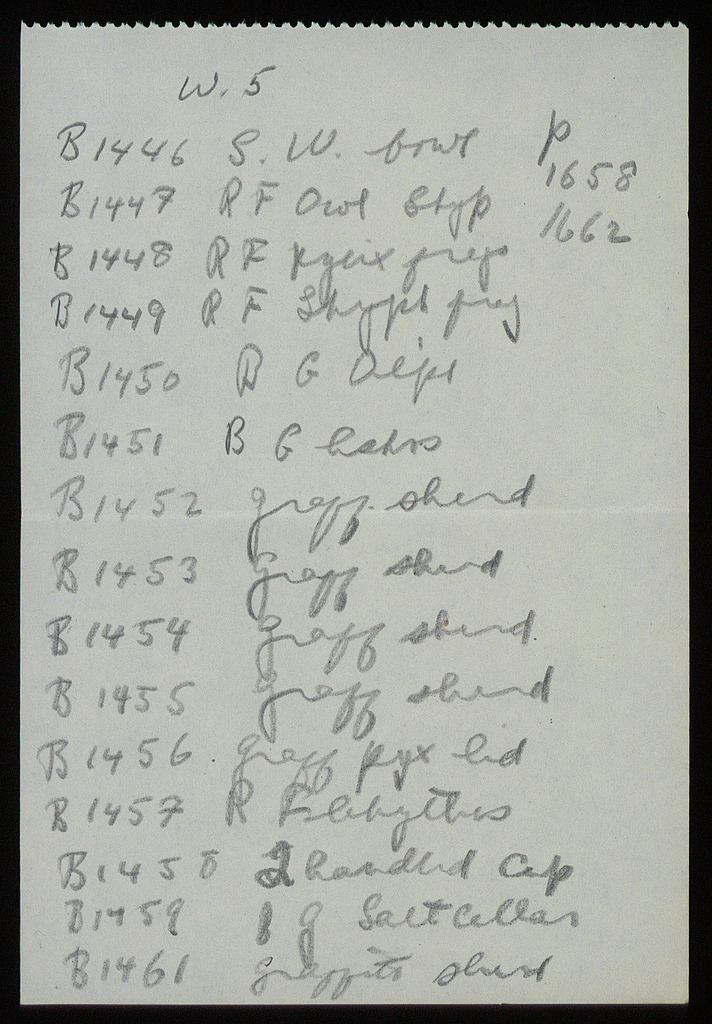 W. 5
B 1446 S. W. bowl p
1658
B 1447 R F Owl Skyp
1662
B 1448 R F pyxix frgs
B 1449 R F Skyph frg
B 1450 B G
B 1451 B G
B 1452 graff. sherd
B 1453 graff sherd
B 1454 graff sherd
B 1455 graff sherd
B 1456 graff pyx lid
B 1457 R F lekythos
B 1458 2 handled Cup
B 1459 g Saltcellar
B 1461 graffito sherd